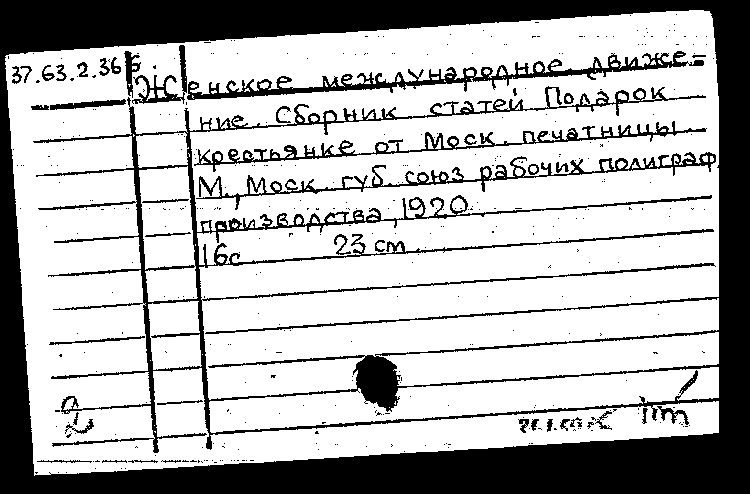 37.63.2.366.
Женское международное движе-
ние. Сборник статей Подарок
крестьянке от Моск. печатницы
М., Моск. губ. союз рабочих полиграф
производства, 1920.
16с 23 см
2